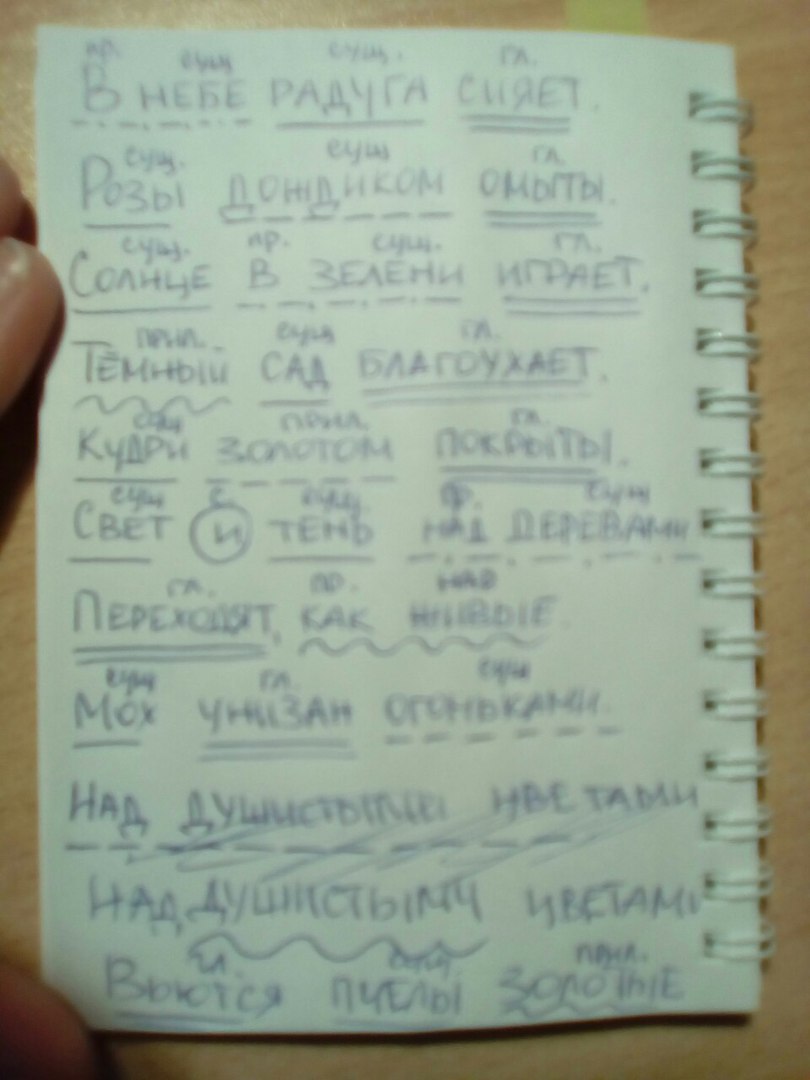 пр. сущ сущ. гл.
В НЕБЕ РАДУГА СИЯЕТ.
сущ. сущ гл.
РОЗЫ ДОЖДИКОМ ОМЫТЫ.
сущ. пр. сущ. гл.
СОЛНЦЕ В ЗЕЛЕНИ ИГРАЕТ.
прил. сущ гл.
ТЁМНЫЙ САД БЛАГОУХАЕТ.
сущ прил. гл.
КУДРИ ЗОЛОТОМ ПОКРЫТЫ.
сущ с. сущ. пр. сущ
СВЕТ И ТЕНЬ НАД ДЕРЕВАМИ
гл. пр. нар
ПЕРЕХОДЯТ, КАК ЖИВЫЕ.
сущ гл. сущ
МОХ УНИЗАН ОГОНЬКАМИ.
НАД ДУШИСТЫМИ ЦВЕТАМИ
НАД ДУШИСТЫМИ ЦВЕТАМИ
гл. сущ. прил.
ВЬЮТСЯ ПЧЕЛЫ ЗОЛОТЫЕ